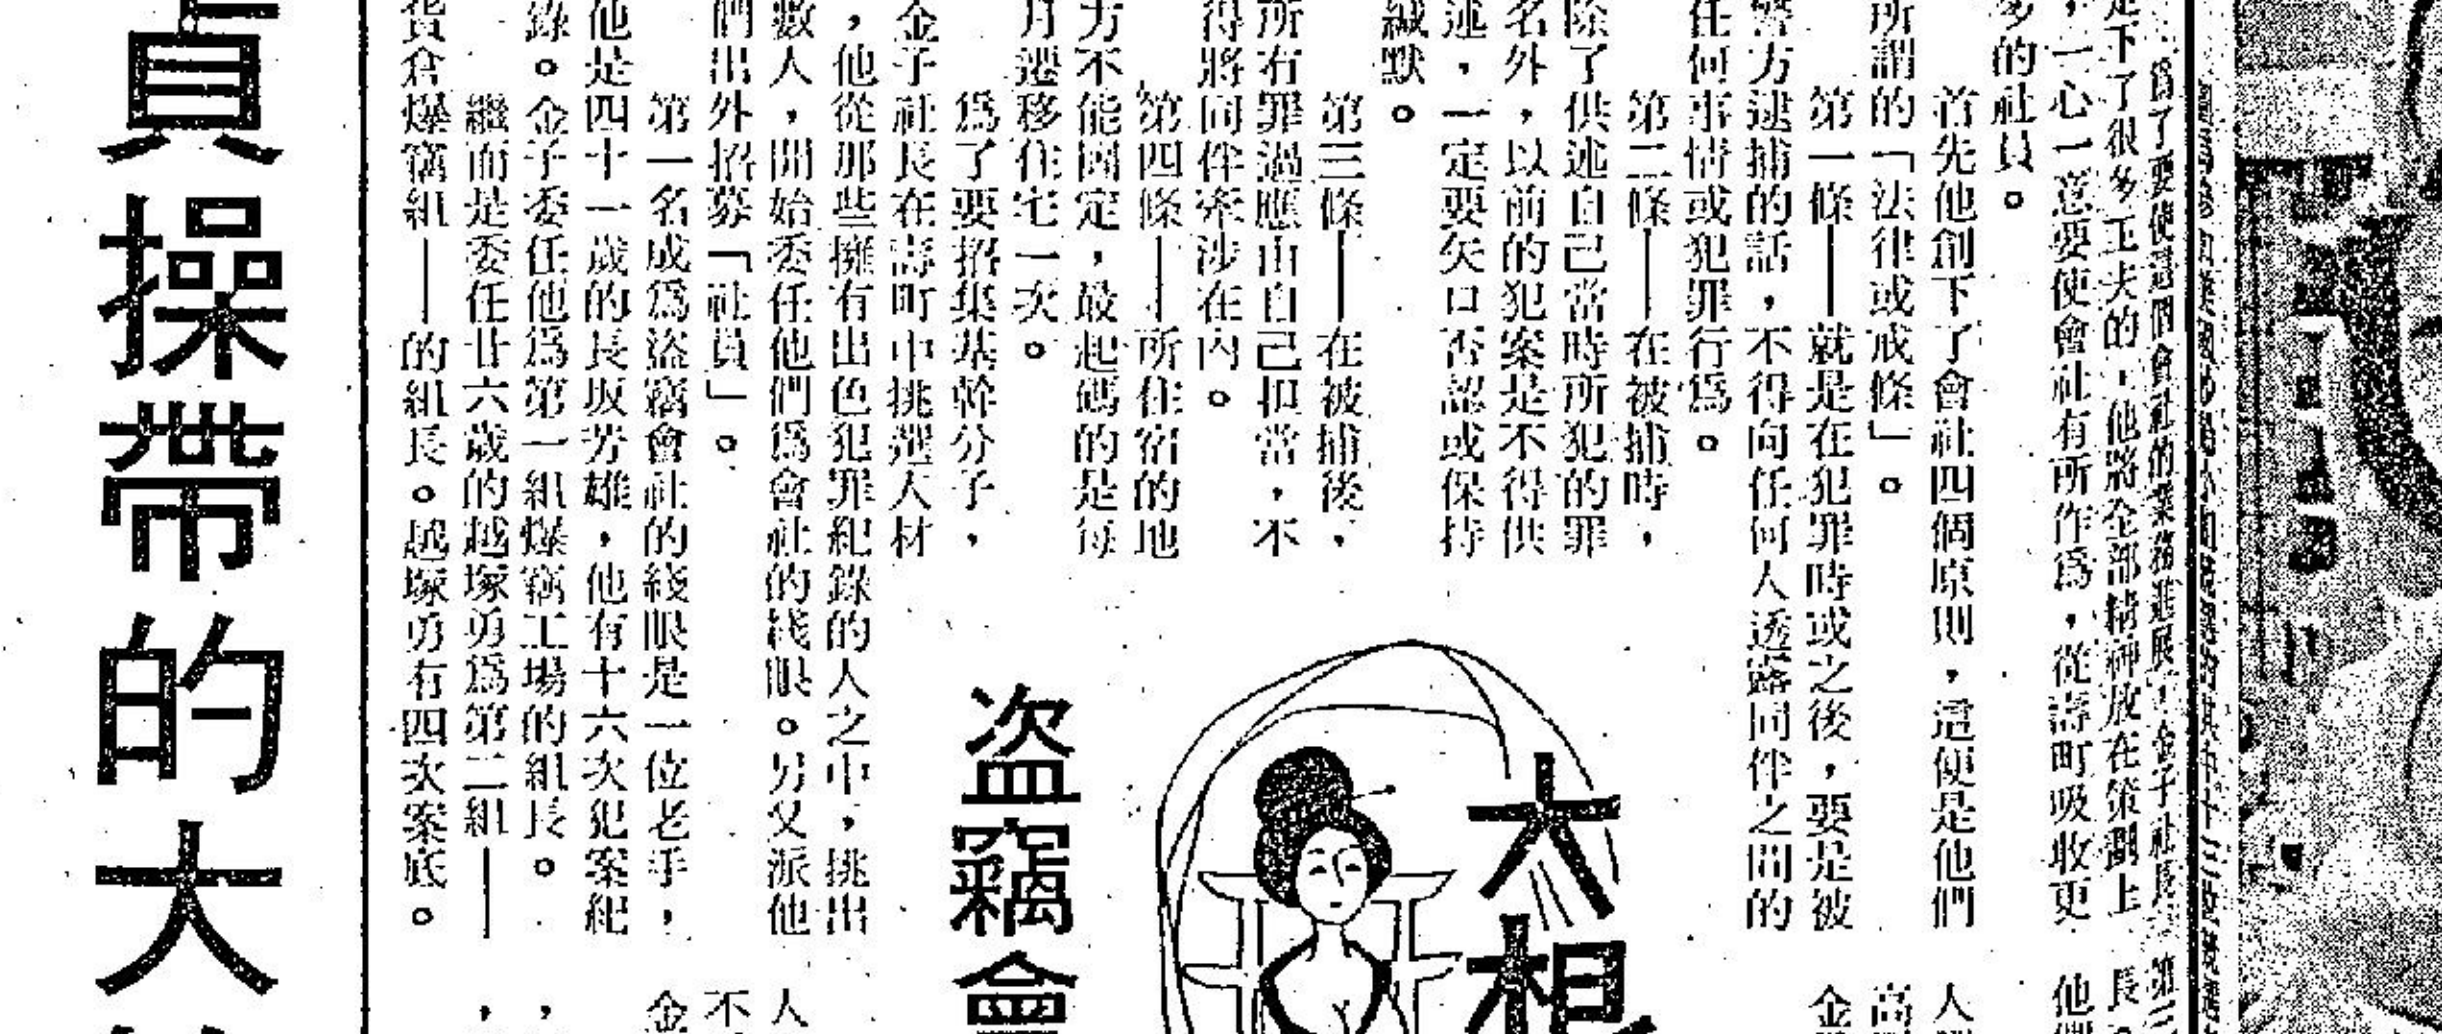 爲了要使這個會社的業務進展，金子社長
是下了很多工夫的，他將全部精神放在策劃上
，一心一意要使會社有所作爲，從壽町吸收更
多的社員。
首先他創下了會社四個原則，這便是他們
所謂的「法律或戒條」。
第一條——就是在犯罪時或之後，要是被
警方逮捕的話，不得向任何人透露同伴之間的
任何事情或犯罪行爲。
第二條——在被捕時，
除了供述自己當時所犯的罪
名外，以前的犯案是不得供
述，一定要矢口否認或保持
緘默。
第三條——在被捕後，
所有罪過應由自己担當，不
得將同伴牽涉在內。
第四條——所住宿的地
方不能固定，最起碼的是每
月遷移住宅一次。
爲了要招集基幹分子，
金子社長在壽町中挑選人材
，他從那些擁有出色犯罪紀錄的人之中，挑出
數人，開始委任他們爲會社的綫眼。另又派他
們出外招募「社員」。
第一名成爲盜竊會社的綫眼是一位老手，
他是四十一歲的長坂芳雄，他有十六次犯案紀
錄。金子委任他爲第一組爆竊工場的組長。
繼而是委任廿六歲的越塚勇爲第二組——
貨倉爆竊組——的組長。越塚勇有四次案底。
大相
盜竊會
貞操帶的大